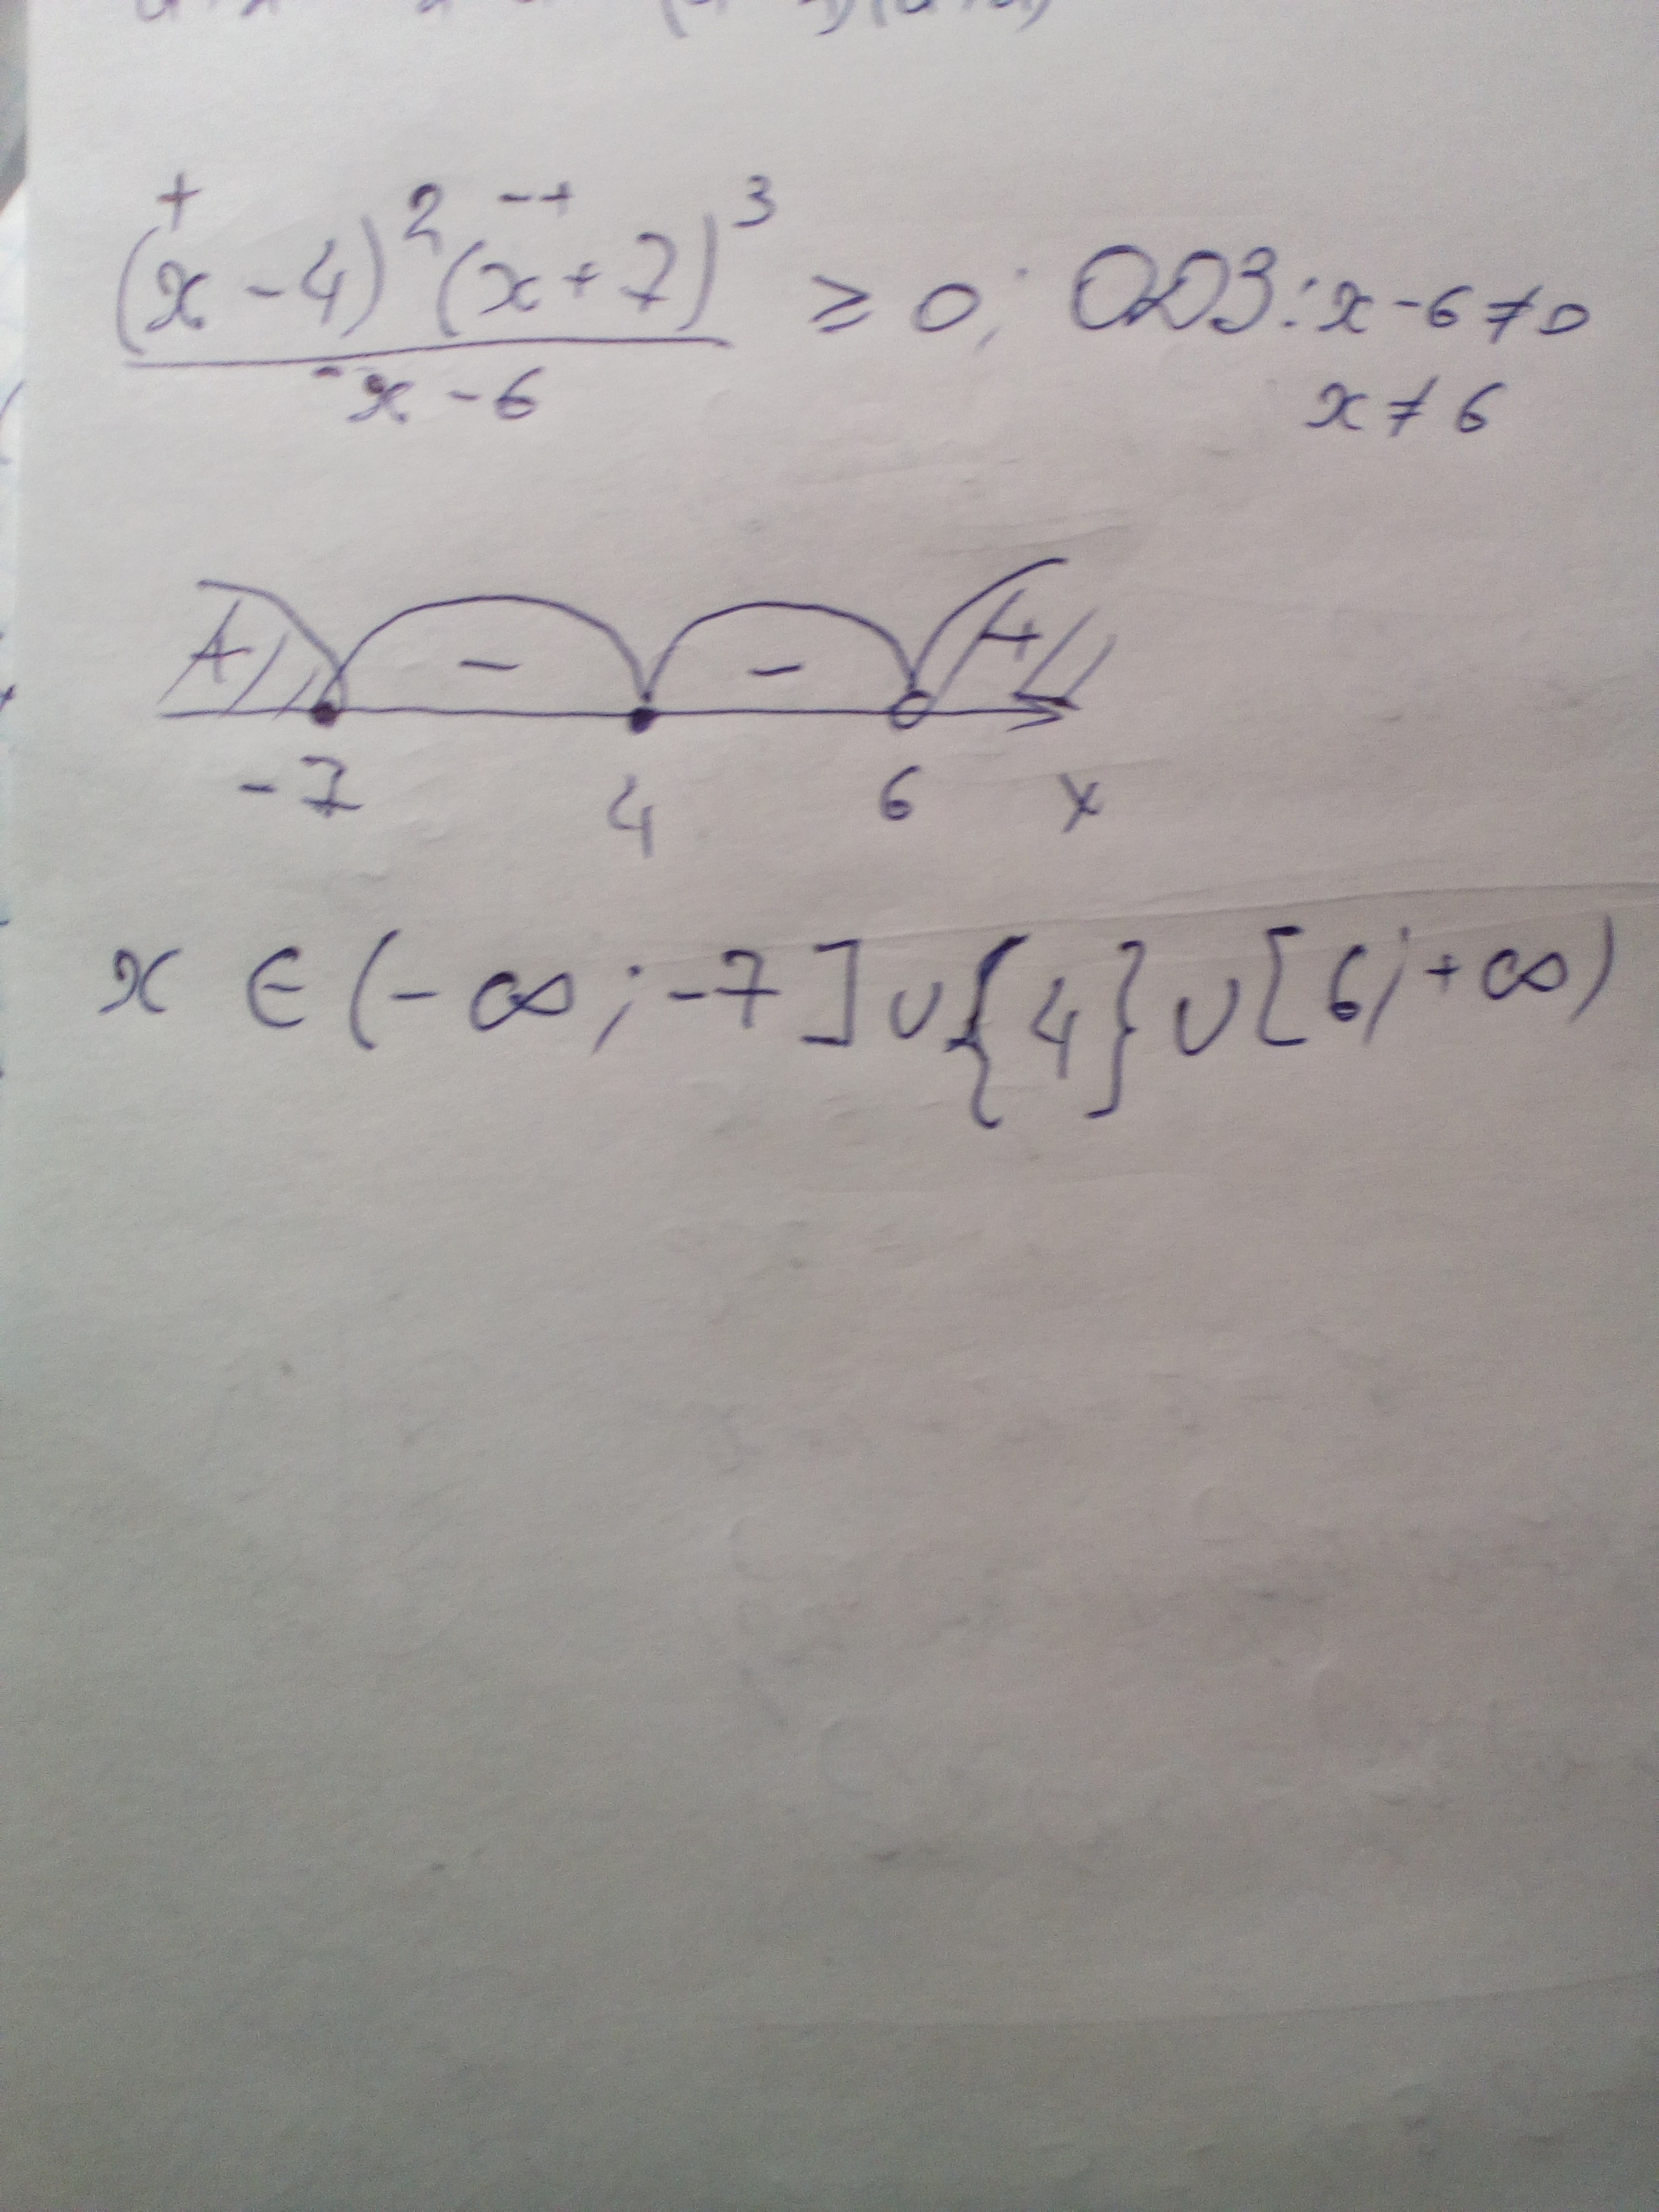 + 2 -+ 3
(x-4)²(x+7)³ / x-6 ≥ 0; ОДЗ: x-6≠0
x≠6
+ - - +
-7 4 6 x
x ∈ (-∞; -7] ∪ {4} ∪ [6; +∞)